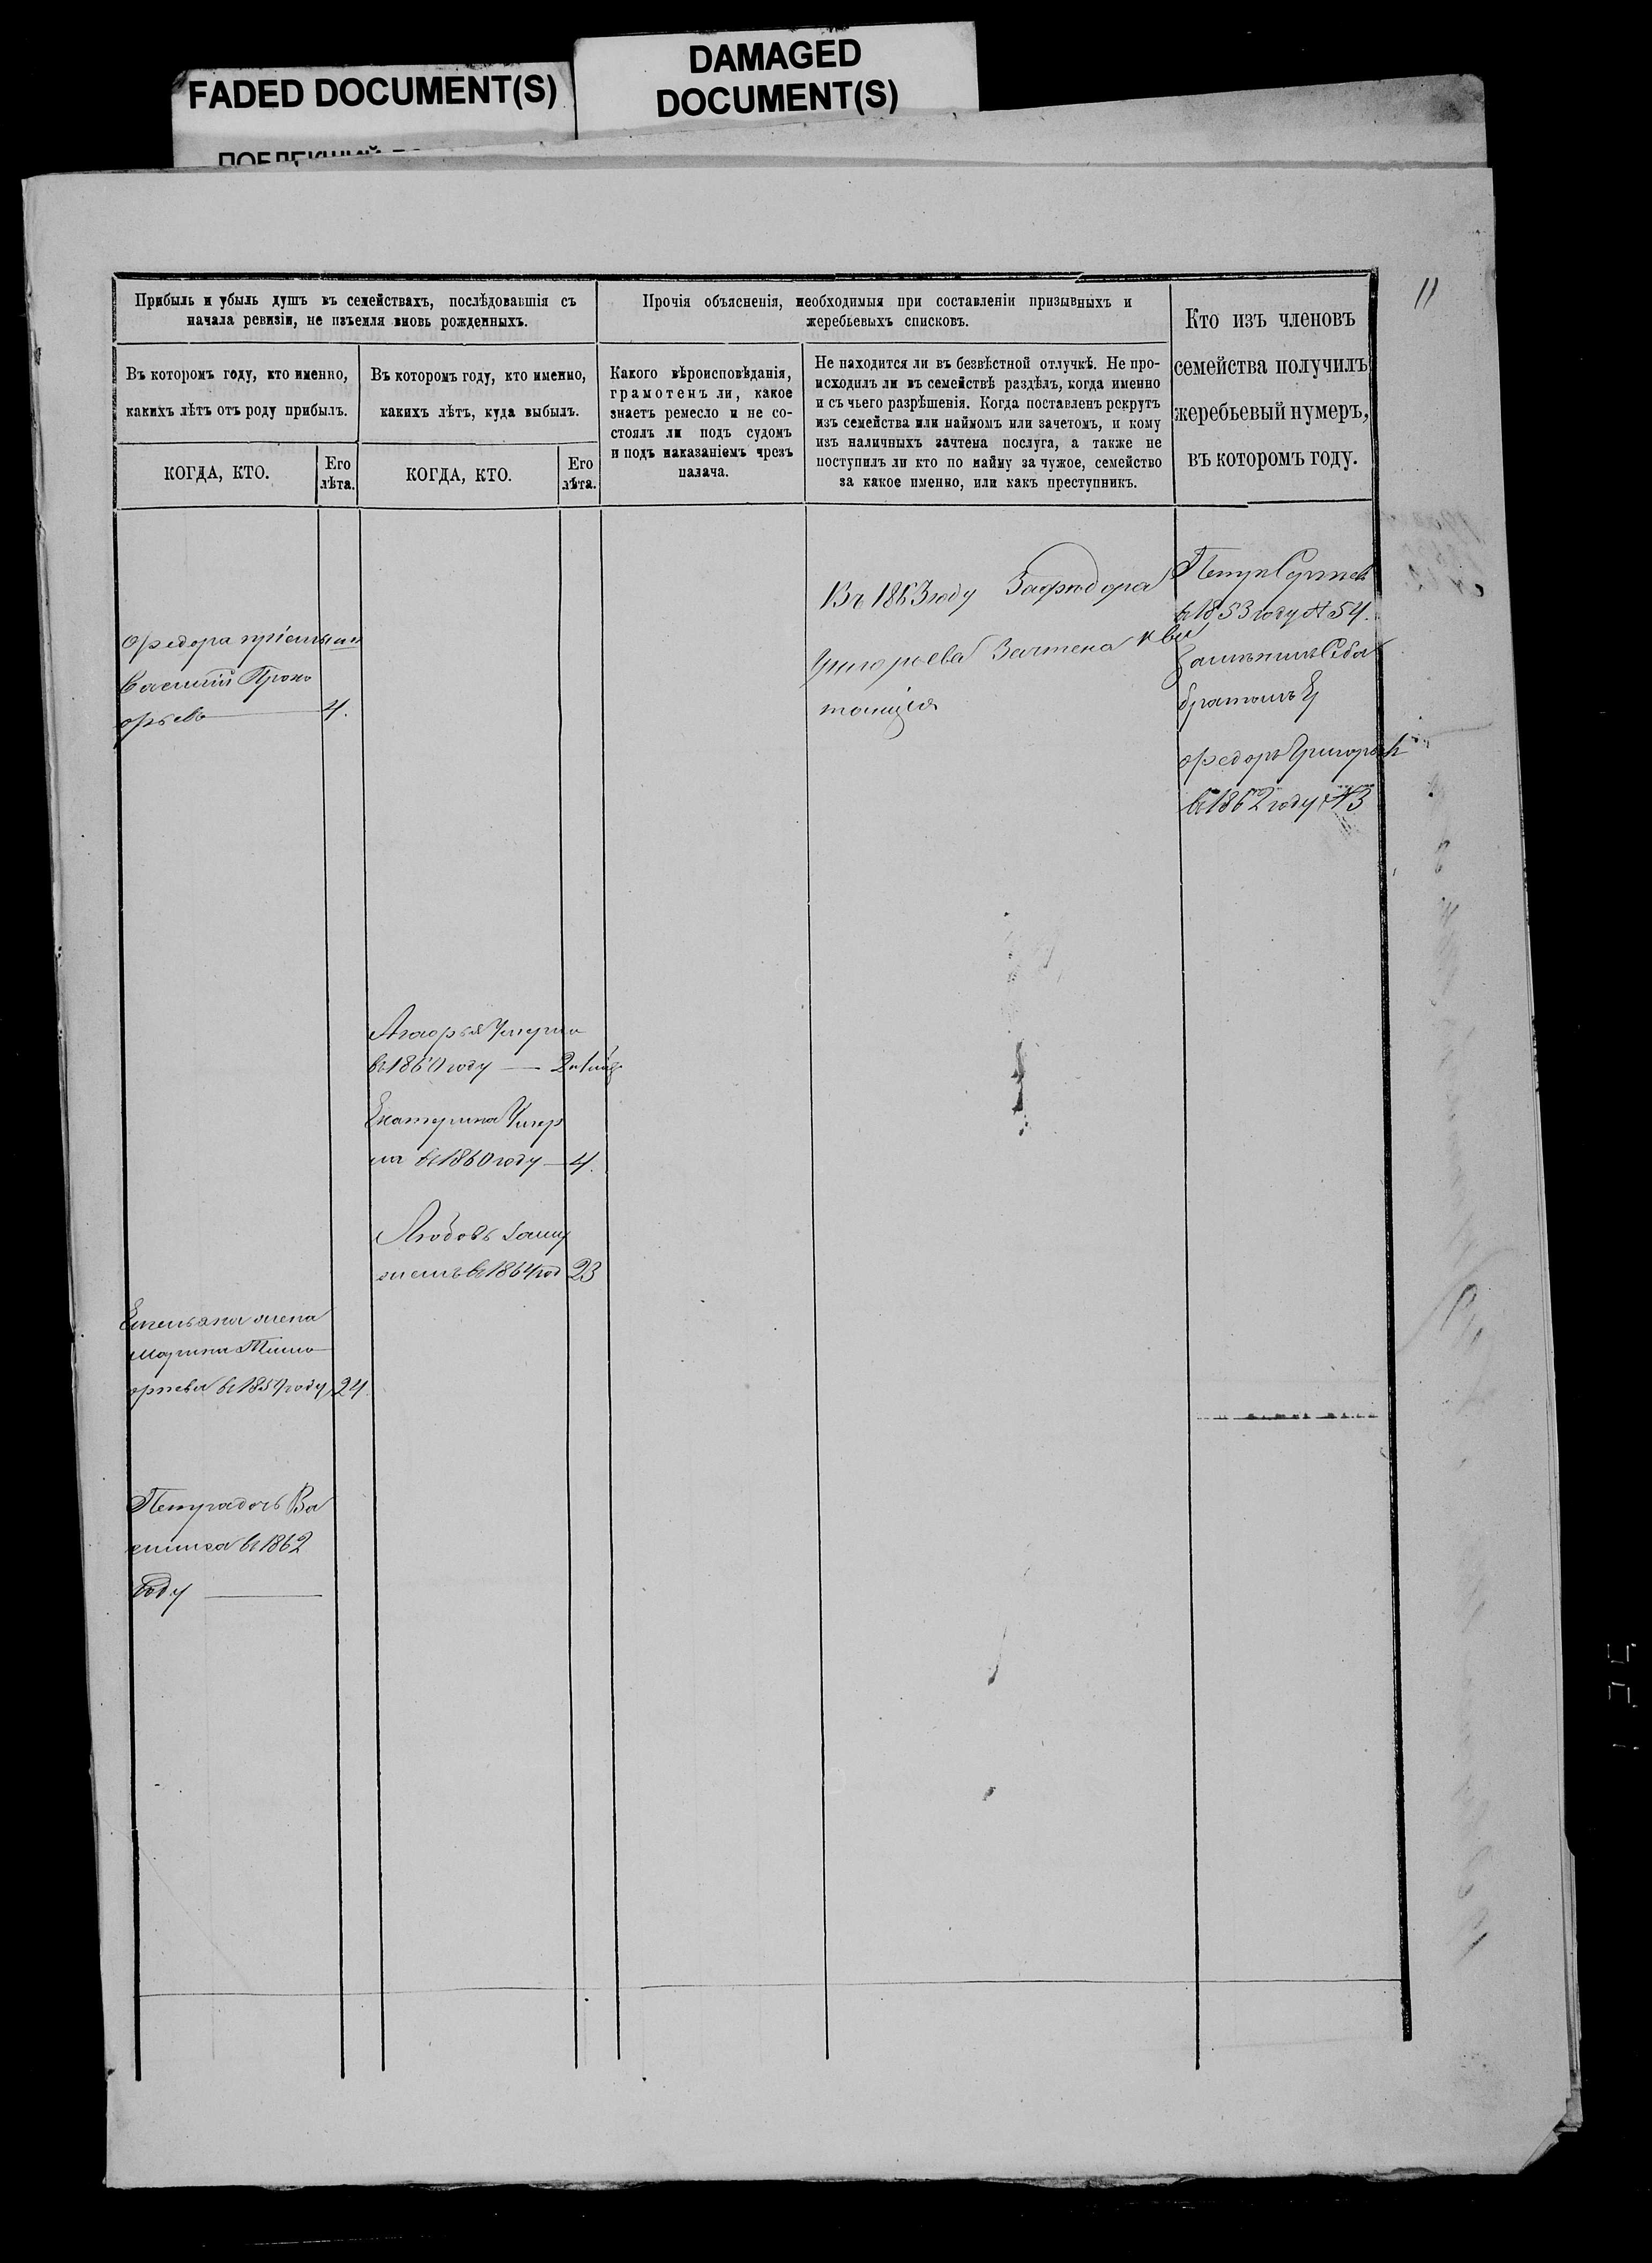 FADED DOCUMENT(S)
DAMAGED
DOCUMENT(S)
11
Прибыль и убыль душъ въ семействахъ, послѣдовавшія съ
начала ревизіи, не изъемля вновь рожденныхъ.
Прочія объясненія, необходимыя при составленіи призывныхъ и
жеребьевыхъ списковъ.
Кто изъ членовъ
семейства получилъ
жеребьевый нумеръ,
въ которомъ году.
Въ которомъ году, кто именно,
какихъ лѣтъ отъ роду прибылъ.
Въ которомъ году, кто именно,
какихъ лѣтъ, куда выбылъ.
Какого вѣроисповѣданія,
грамотенъ ли, какое
знаетъ ремесло и не со-
стоялъ ли подъ судомъ
и подъ наказаніемъ чрезъ
палача.
Не находится ли въ безвѣстной отлучкѣ. Не про-
исходилъ ли въ семействѣ раздѣлъ, когда именно
и съ чьего разрѣшенія. Когда поставленъ рекрутъ
изъ семейства или наймомъ или зачетомъ, и кому
изъ наличныхъ зачтена послуга, а также не
поступилъ ли кто по найму за чужое, семейство
за какое именно, или какъ преступникъ.
КОГДА, КТО.
Его
лѣта.
КОГДА, КТО.
Его
лѣта.
Федора пріемышъ
Василій Проко
фьевъ 4.
Въ 1863 году За Федора
Григорьева Зачтена кви
танція
Петръ Сергѣевъ
въ 1853 году № 54.
братомъ
Федоръ Григорьевъ
въ 1862 году № 3
году
Екатерина
въ 1860 году 4.
Любовь Заму
жемъ въ 1864 год 23
Емельяна жена
Марина Тимо
фѣева въ году 24
Петра дочь Ва
силиса въ 1862
Году